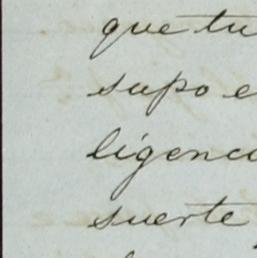 que tu
supo e
ligenci
suerte